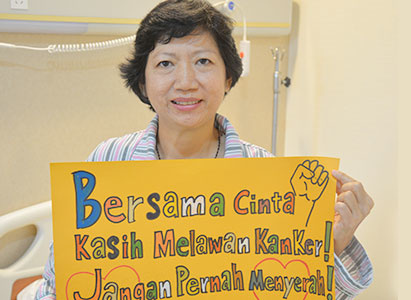 Bersama Cinta
Kasih Melawan Kanker!
Jangan Pernah Menyerah!